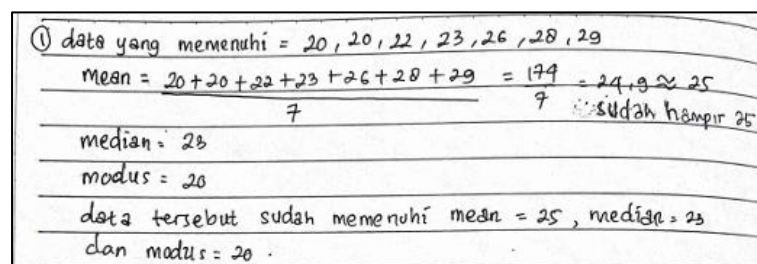 ① data yang memenuhi = 20, 20, 22, 23, 26, 28, 29
mean = 20+20+22+23+26+28+29 / 7 = 174 / 7 = 24,9 ≈ 25
sudah hampir 25
median = 23
modus = 20
data tersebut sudah memenuhi mean = 25, median = 23
dan modus = 20.